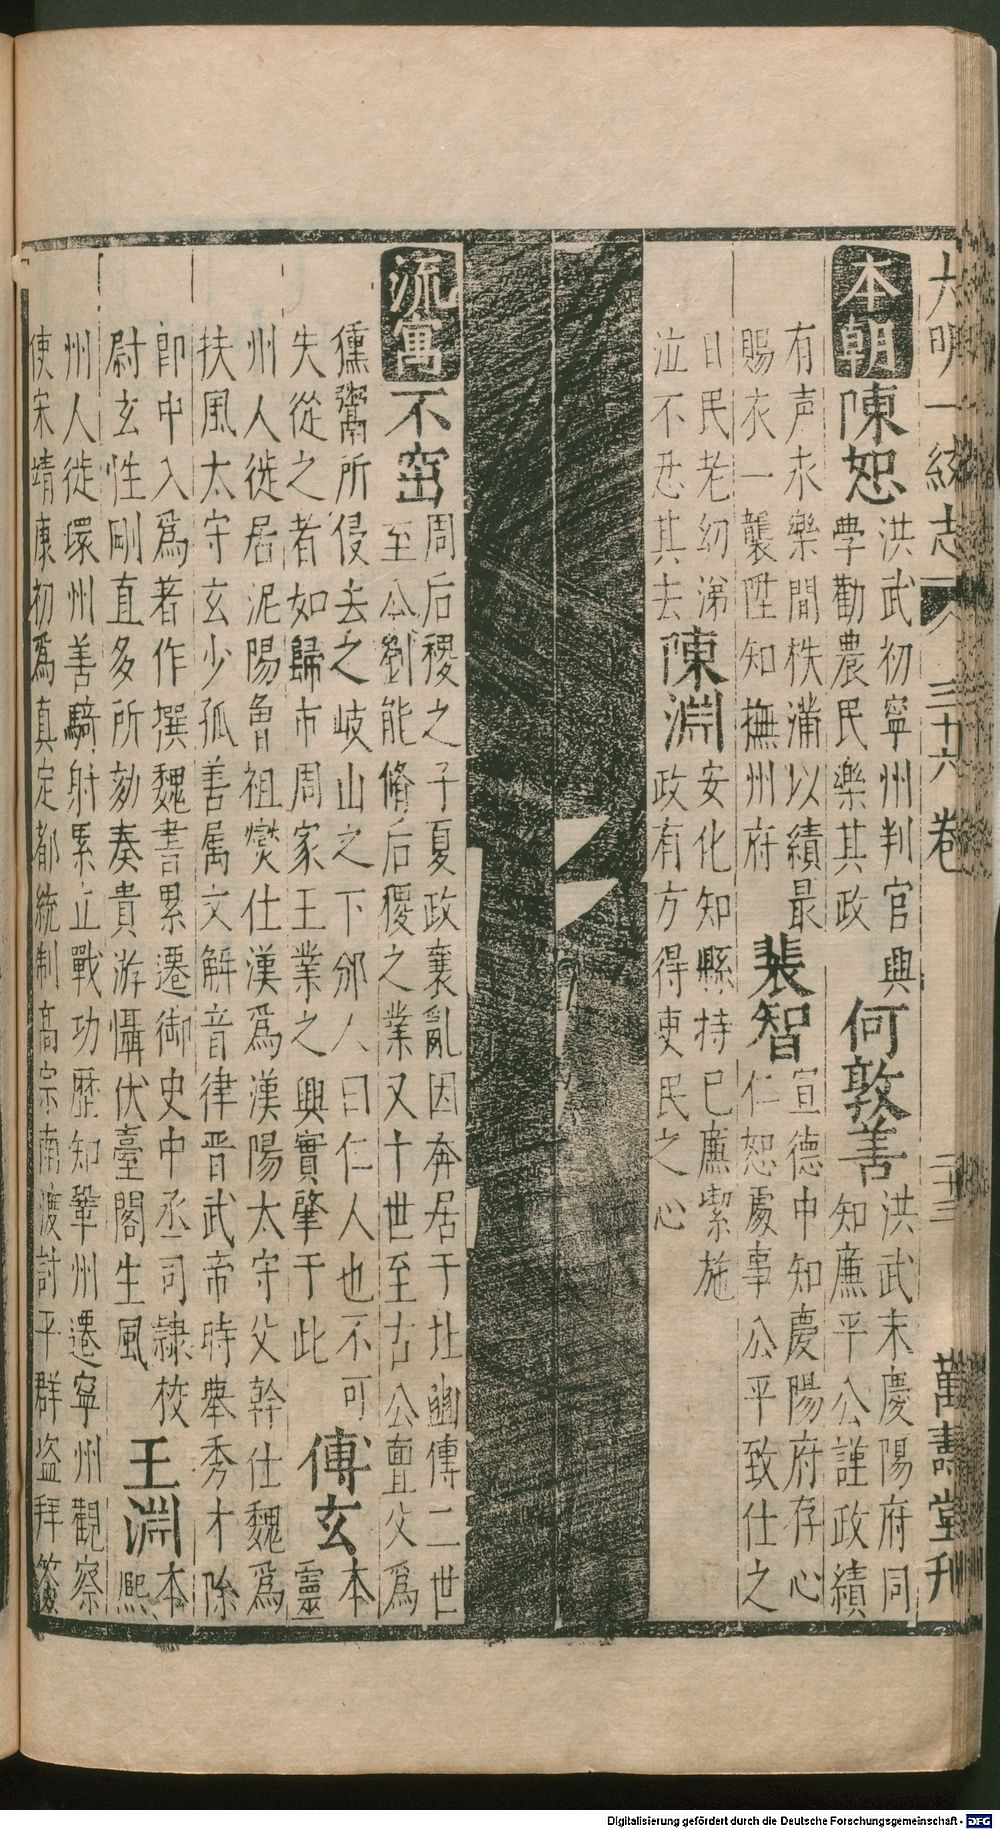 大明一統志 三十六卷 二十三 萬壽堂刊
本朝 陳恕 洪武初寧州判官興
學勸農民樂其政 何敦善 洪武末慶陽府同
知廉平公謹政績
有声永樂間秩滿以績最
賜衣一襲陞知撫州府 裴智 宣德中知慶陽府存心
仁恕處事公平致仕之
日民老幼涕
泣不忍其去 陳淵 安化知縣持已廉潔施
政有方得吏民之心
流寓 不窋 周后稷之子夏政衰亂因奔居于北豳傳二世
至公劉能脩后稷之業又十世至古公亶父爲
獯鬻所侵去之岐山之下邠人曰仁人也不可
失從之者如歸市周家王業之興實肇于此 傅玄 本
靈
州人徙居泥陽魯祖燮仕漢爲漢陽太守父幹仕魏爲
扶風太守玄少孤善属文解音律晋武帝時舉秀才除
郎中入爲著作撰魏書累遷御史中丞司隷校
尉玄性剛直多所劾奏貴游懾伏臺閣生風 王淵 本
熙
州人徙環州善騎射累立戰功歷知鞏州遷寧州觀察
使宋靖康初爲真定都統制高宗南渡討平群盗拜簽
Digitalisierung gefördert durch die Deutsche Forschungsgemeinschaft - DFG